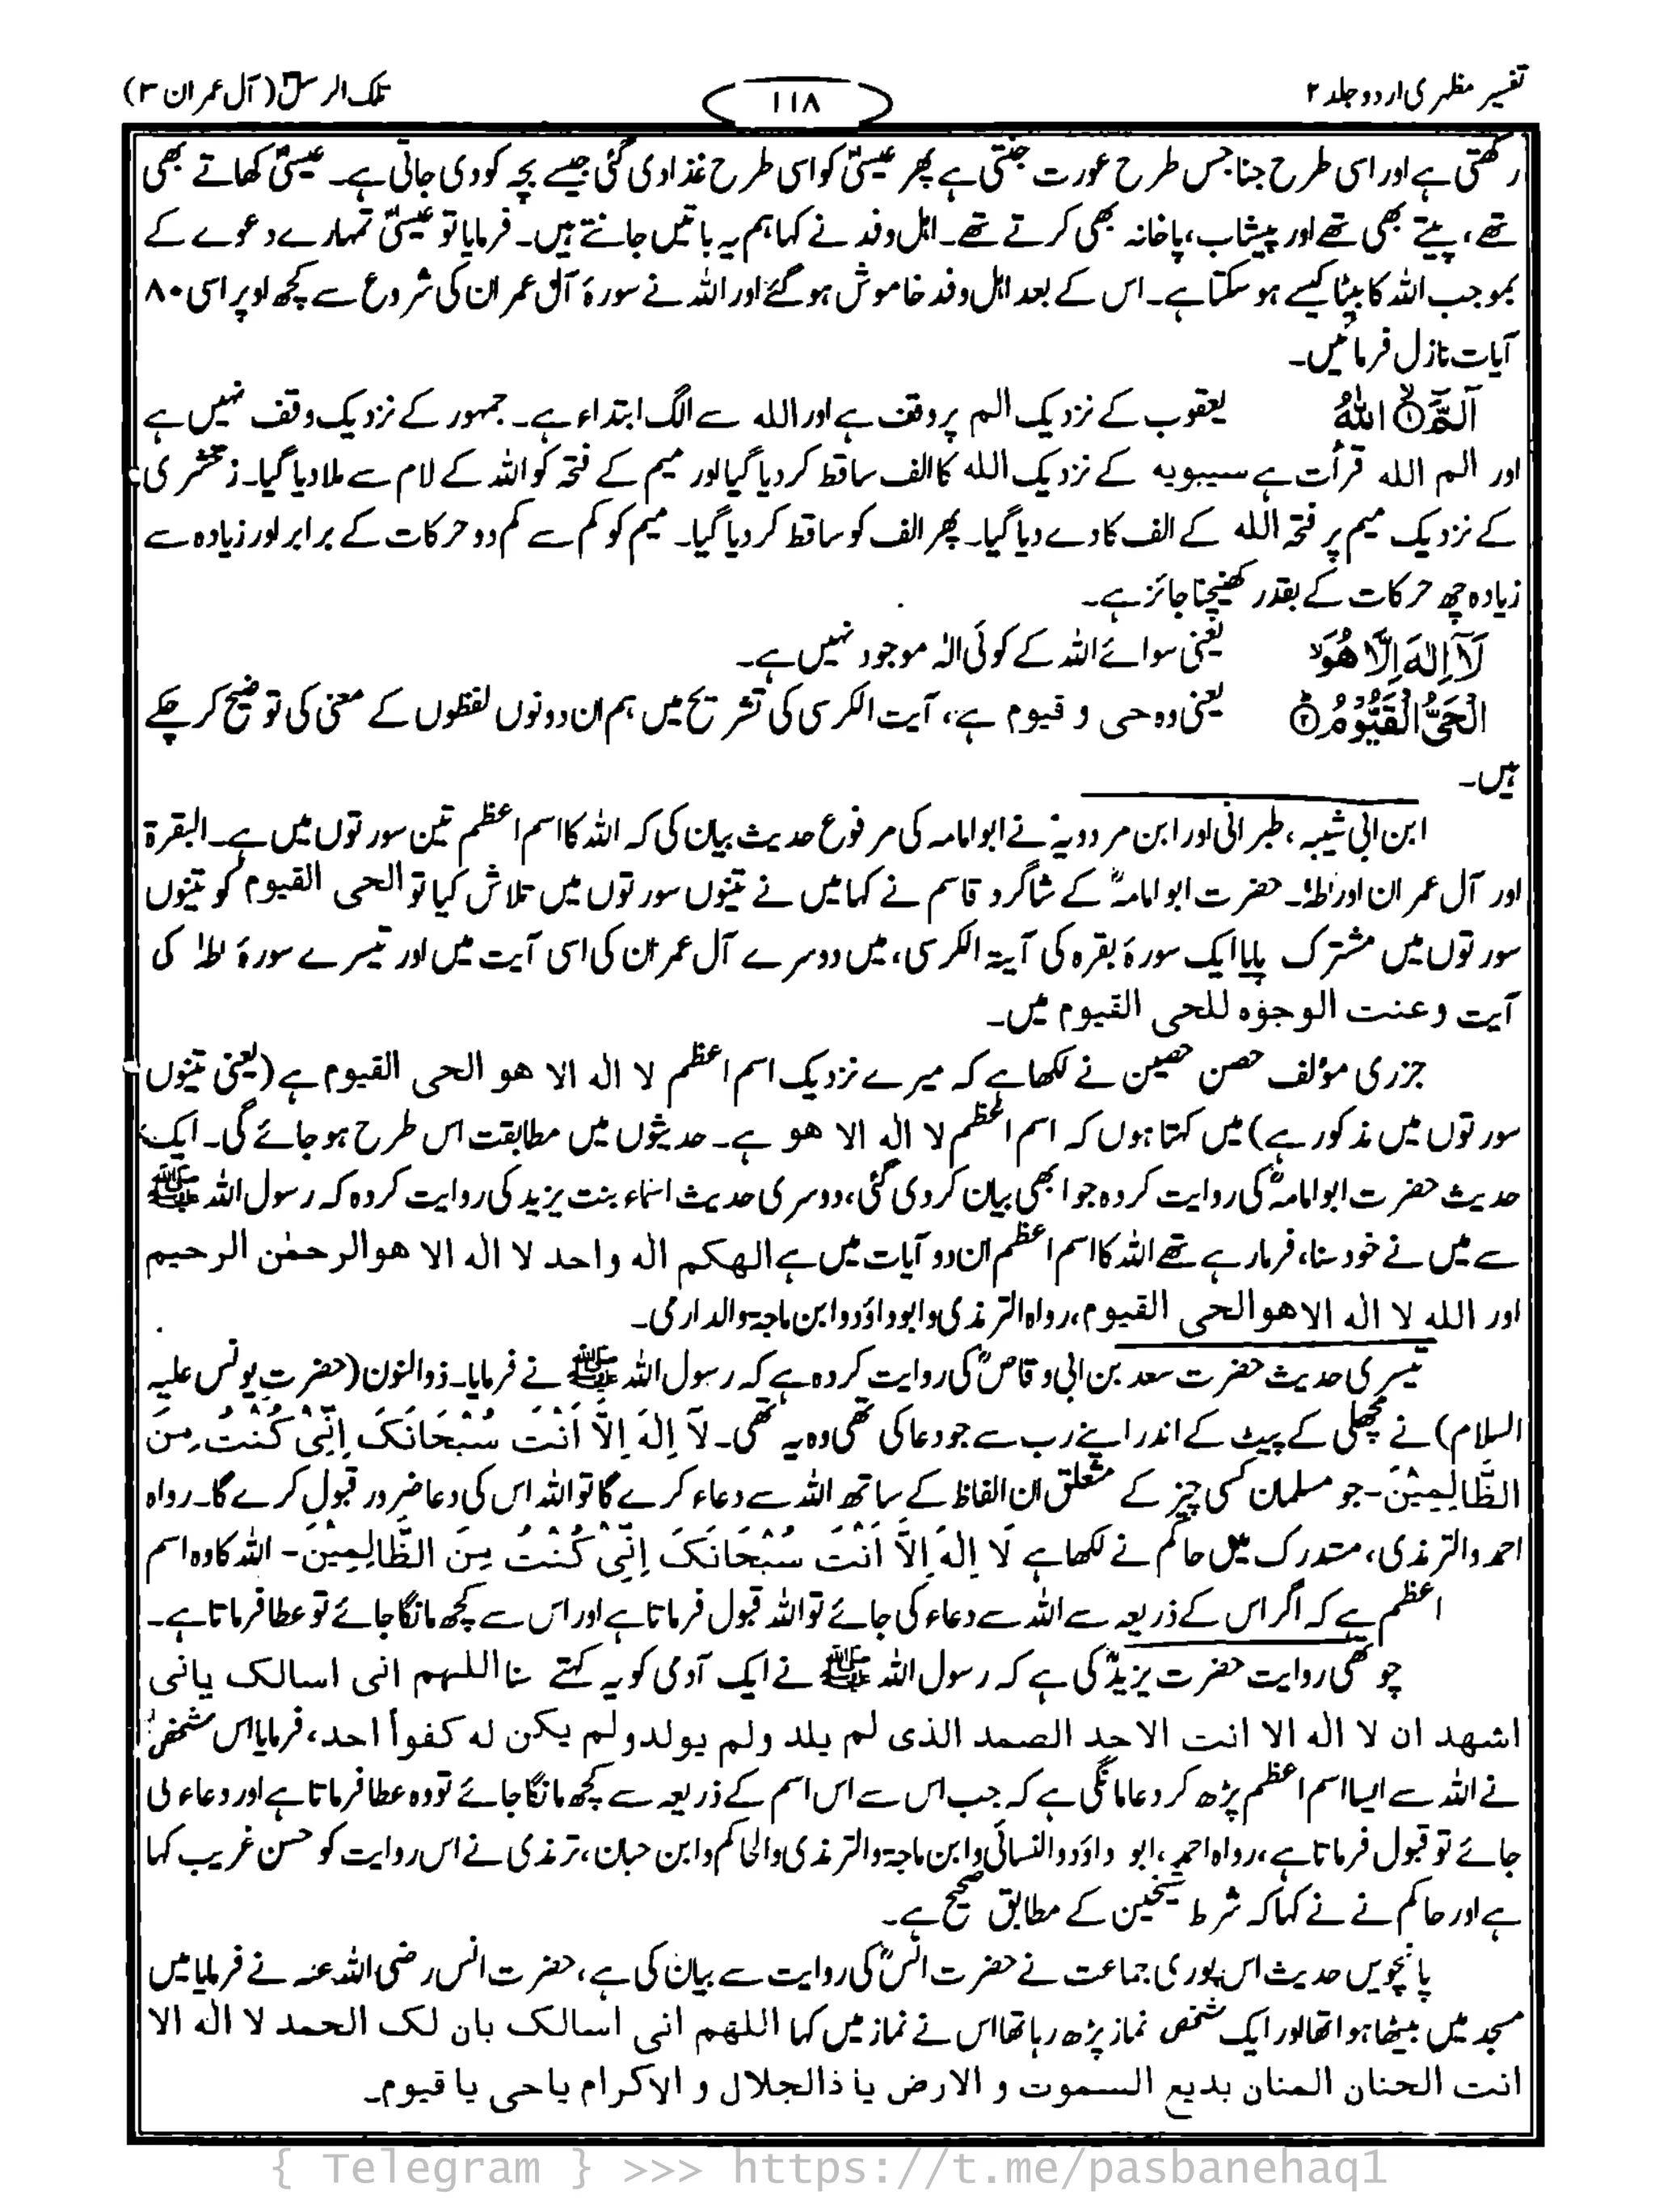 تفسیر مظہری اردو جلد ۲
۱۱۸
تلک الرسل (آل عمران ۳)
رکھتی ہے اور اسی طرح جنا جس طرح عورت جنتی ہے پھر عیسیٰؑ کو اسی طرح غذا دی گئی جیسے بچہ کو دی جاتی ہے۔ عیسیٰؑ کھاتے بھی
تھے، پیتے بھی تھے اور پیشاب، پاخانہ بھی کرتے تھے۔ اہل وفد نے کہا ہم یہ باتیں جانتے ہیں۔ فرمایا تو عیسیٰؑ تمہارے دعوے کے
بموجب اللہ کا بیٹا کیسے ہو سکتا ہے۔ اس کے بعد اہل وفد خاموش ہو گئے اور اللہ نے سورۂ آل عمران کی شروع سے کچھ اوپر اسی ۸۰
آیات نازل فرمائیں۔
الٓمّٓ ۝۱ اللّٰهُ یعقوب کے نزدیک الم پر وقف ہے اور اللہ سے الگ ابتداء ہے۔ جمہور کے نزدیک وقف نہیں ہے
اور الم اللہ قرأت ہے سیبویہ کے نزدیک اللہ کا الف ساقط کر دیا گیا اور میم کے فتحہ کو اللہ کے لام سے ملا دیا گیا۔ زمخشری
کے نزدیک میم پر فتحہ اللہ کے الف کا دے دیا گیا۔ پھر الف کو ساقط کر دیا گیا۔ میم کو کم سے کم دو حرکات کے برابر اور زیادہ سے
زیادہ چھ حرکات کے بقدر کھینچنا جائز ہے۔
لَآ اِلٰهَ اِلَّا هُوَ ۙ یعنی سوائے اللہ کے کوئی الٰہ موجود نہیں ہے۔
الْحَیُّ الْقَیُّوْمُ ۝۲ یعنی وہ حی و قیوم ہے، آیت الکرسی کی تشریح میں ہم ان دونوں لفظوں کے معنی کی توضیح کر چکے
ہیں۔
ابن ابی شیبہ، طبرانی اور ابن مردویہ نے ابو امامہ کی مرفوع حدیث بیان کی کہ اللہ کا اسم اعظم تین سورتوں میں ہے۔ البقرۃ
اور آل عمران اور طٰہٰ۔ حضرت ابو امامہؓ کے شاگرد قاسم نے کہا میں نے تینوں سورتوں میں تلاش کیا تو الحی القیوم کو تینوں
سورتوں میں مشترک پایا ایک سورۂ بقرہ کی آیۃ الکرسی، میں دوسرے آل عمران کی اسی آیت میں اور تیسرے سورۂ طٰہٰ کی
آیت وعنت الوجوہ للحی القیوم میں۔
جزری مؤلف حصن حصین نے لکھا ہے کہ میرے نزدیک اسم اعظم لا الہ الا ھو الحی القیوم ہے (یعنی تینوں
سورتوں میں مذکور ہے) میں کہتا ہوں کہ اسم اعظم لا الہ الا ھو ہے۔ حدیثوں میں مطابقت اس طرح ہو جائے گی۔ ایک
حدیث حضرت ابو امامہؓ کی روایت کردہ جو ابھی بیان کر دی گئی، دوسری حدیث اسماء بنت یزید کی روایت کردہ کہ رسول اللہ ﷺ
سے میں نے خود سنا، فرما رہے تھے اللہ کا اسم اعظم ان دو آیات میں ہے الھکم الہ واحد لا الہ الا ھو الرحمٰن الرحیم
اور اللہ لا الہ الا ھو الحی القیوم، رواہ الترمذی وابو داؤد وابن ماجۃ والدارمی۔
تیسری حدیث حضرت سعد بن ابی وقاصؓ کی روایت کردہ ہے کہ رسول اللہ ﷺ نے فرمایا۔ ذوالنون (حضرت یونس علیہ
السلام) نے مچھلی کے پیٹ کے اندر اپنے رب سے جو دعا کی تھی وہ یہ تھی۔ لَآ اِلٰهَ اِلَّا اَنْتَ سُبْحَانَکَ اِنِّیْ کُنْتُ مِنَ
الظَّالِمِیْنَ۔ جو مسلمان کسی چیز کے متعلق ان الفاظ کے ساتھ اللہ سے دعاء کرے گا تو اللہ اس کی دعا ضرور قبول کرے گا۔ رواہ
احمد والترمذی، مستدرک میں حاکم نے لکھا ہے لَا اِلٰهَ اِلَّا اَنْتَ سُبْحَانَکَ اِنِّیْ کُنْتُ مِنَ الظَّالِمِیْنَ۔ اللہ کا وہ اسم
اعظم ہے کہ اگر اس کے ذریعہ سے اللہ سے دعاء کی جائے تو اللہ قبول فرماتا ہے اور اس سے کچھ مانگا جائے تو عطا فرماتا ہے۔
چوتھی روایت حضرت یزیدؓ کی ہے کہ رسول اللہ ﷺ نے ایک آدمی کو یہ کہتے سنا اللھم انی اسالک بانی
اشھد ان لا الہ الا انت الاحد الصمد الذی لم یلد ولم یولد ولم یکن لہ کفوأ احد، فرمایا اس شخص
نے اللہ سے ایسا اسم اعظم پڑھ کر دعا مانگی ہے کہ جب اس سے اس اسم کے ذریعہ سے کچھ مانگا جائے تو وہ عطا فرماتا ہے اور دعاء کی
جائے تو قبول فرماتا ہے، رواہ احمد، ابو داؤد والنسائی وابن ماجۃ والترمذی والحاکم وابن حبان، ترمذی نے اس روایت کو حسن غریب کہا
ہے اور حاکم نے نے کہا کہ شرط شیخین کے مطابق صحیح ہے۔
پانچویں حدیث اس پوری جماعت نے حضرت انسؓ کی روایت سے بیان کی ہے، حضرت انس رضی اللہ عنہ نے فرمایا میں
مسجد میں بیٹھا ہوا تھا اور ایک شخص نماز پڑھ رہا تھا اس نے نماز میں کہا اللھم انی اسالک بان لک الحمد لا الہ الا
انت الحنان المنان بدیع السموت و الارض یا ذالجلال و الاکرام یا حی یا قیوم۔
{ Telegram } >>> https://t.me/pasbanehaq1